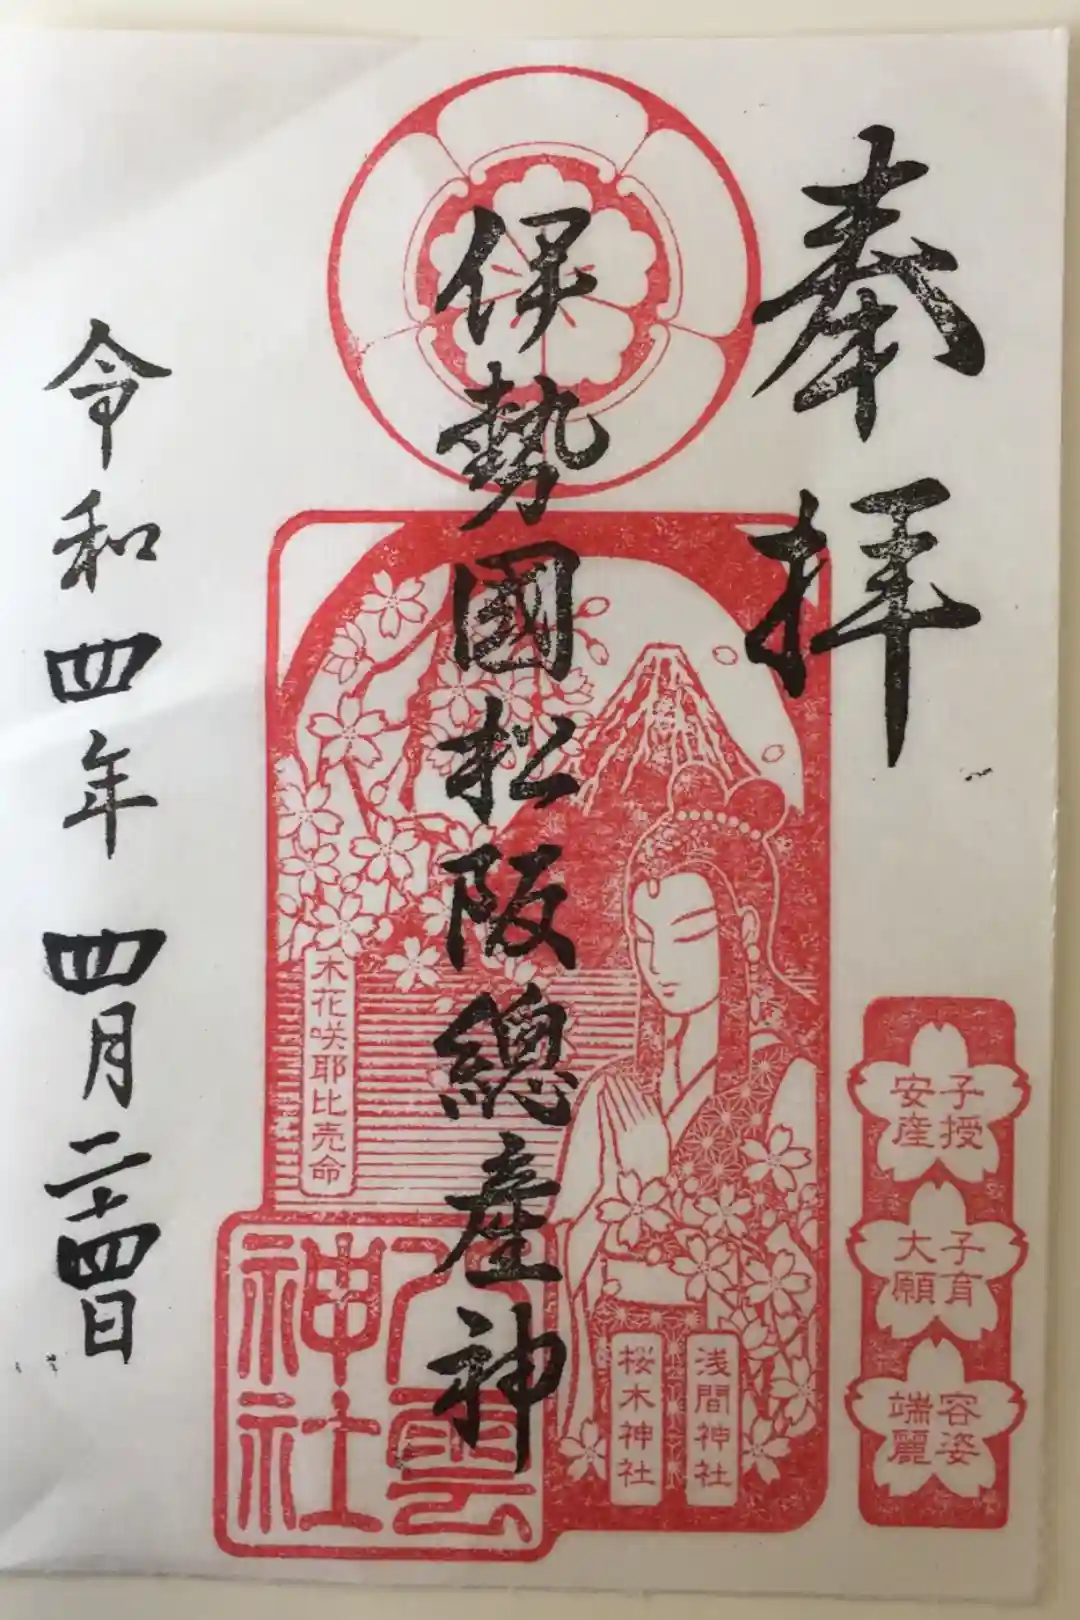 奉拝
伊勢國松阪總産神
令和四年四月二十四日
木花咲耶比売命
浅間神社
桜木神社
八雲
神社
子授
安産
子育
大願
容姿
端麗